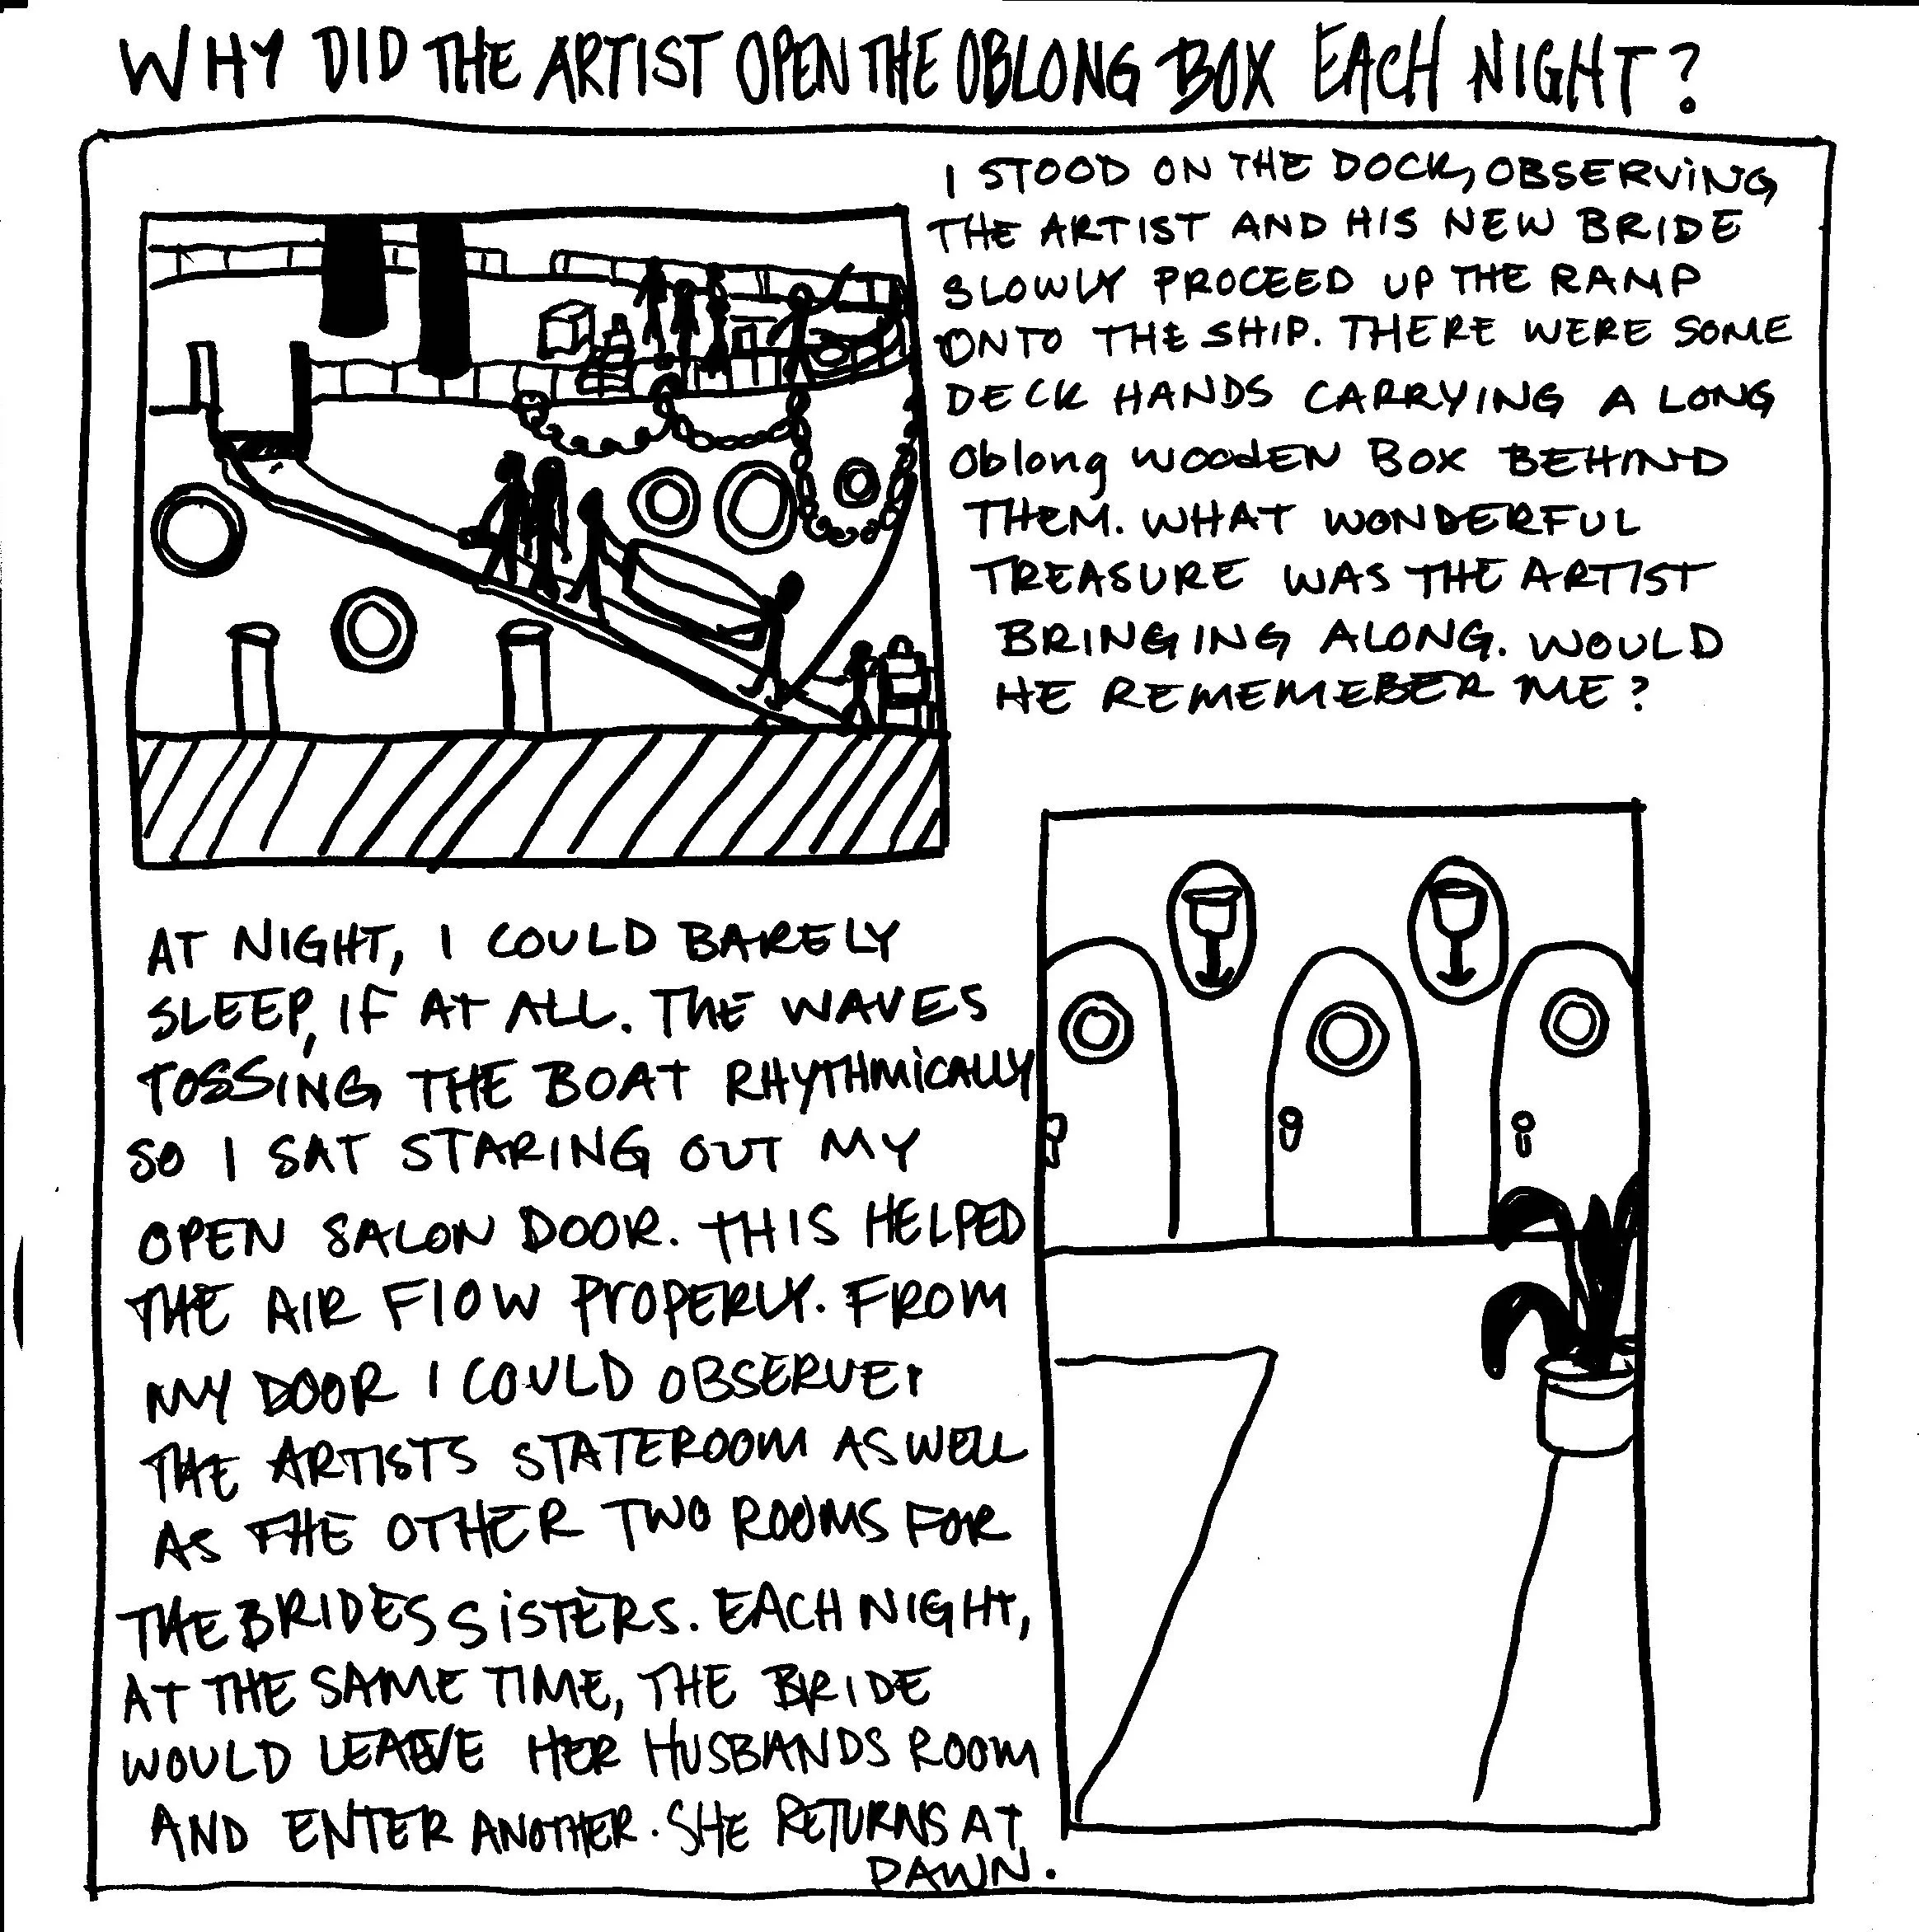 WHY DID THE ARTIST OPEN THE OBLONG BOX EACH NIGHT?
I STOOD ON THE DOCK, OBSERVING
THE ARTIST AND HIS NEW BRIDE
SLOWLY PROCEED UP THE RAMP
ONTO THE SHIP. THERE WERE SOME
DECK HANDS CARRYING A LONG
Oblong WOODEN BOX BEHIND
THEM. WHAT WONDERFUL
TREASURE WAS THE ARTIST
BRINGING ALONG. WOULD
HE REMEMEBER ME?
AT NIGHT, I COULD BARELY
SLEEP, IF AT ALL. THE WAVES
TOSSING THE BOAT RHYTHMICALLY
SO I SAT STARING OUT MY
OPEN SALON DOOR. THIS HELPED
THE AIR FLOW PROPERLY. FROM
MY DOOR I COULD OBSERVE
THE ARTISTS STATEROOM AS WELL
AS THE OTHER TWO ROOMS FOR
THE BRIDES SISTERS. EACH NIGHT,
AT THE SAME TIME, THE BRIDE
WOULD LEAVE HER HUSBANDS ROOM
AND ENTER ANOTHER. SHE RETURNS AT
DAWN.